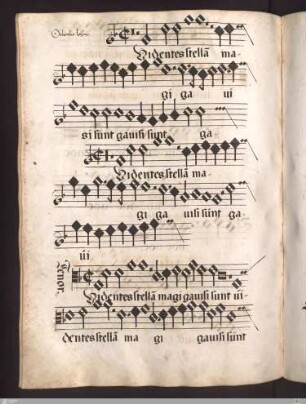 Videntes stellã ma-
gi ga ui
si sunt gauisi sunt ga-
Videntes stellã ma-
gi ga- uisi sunt ga-
ui
Tenor.
Videntes stellã magi gauisi sunt ui-
dentes stellã ma gi gauisi sunt